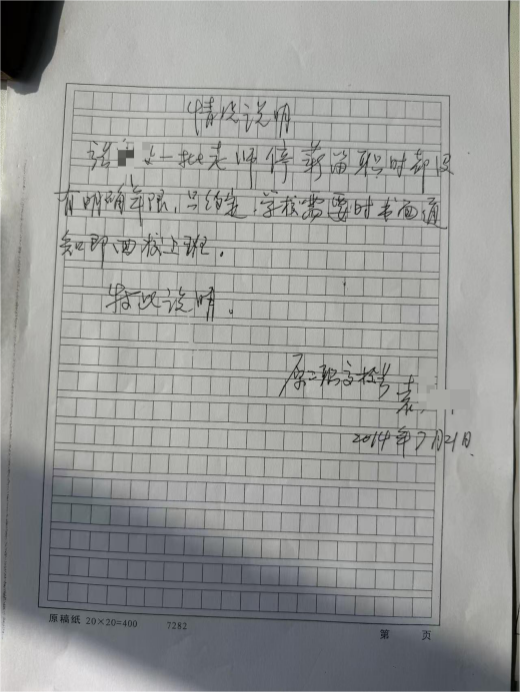 情况说明
诸 一批老师停薪留职时都没
有明确年限，只约定，学校需要时书面通
知即回校上班。
特此说明。
原二职高校长 袁
2014年7月21日
原稿纸 20×20=400 7282 第 页